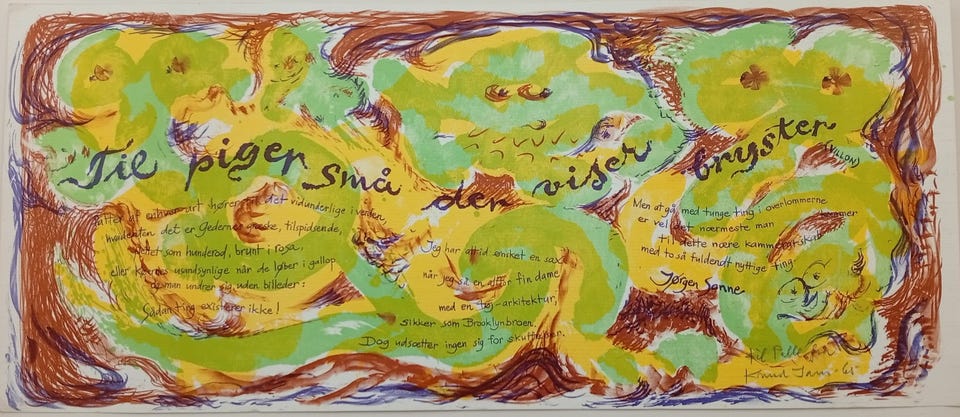 Til piger små den viser bryster
(VILLON)
Patter af enhver art hører til det vidunderlige i verden,
hvadenten det er Gedernes maske, tilspidsende,
som hunderød, brunt i rosa,
eller usandsynlige når de løber i gallop
man undrer sig, uden billeder:
Sådan ting existerer ikke!
Jeg har altid ønsket en sax
når jeg så en altfor fin dame
med en tøj-arkitektur,
sikker som Brooklynbroen.
Dog udsætter ingen sig for
Men at gå med tunge ting i overlommerne
er vel det nærmeste man kommer
til dette nære kammeratskab
med to så fuldendt nyttige ting.
Jørgen Sonne
til Pelle
Knud